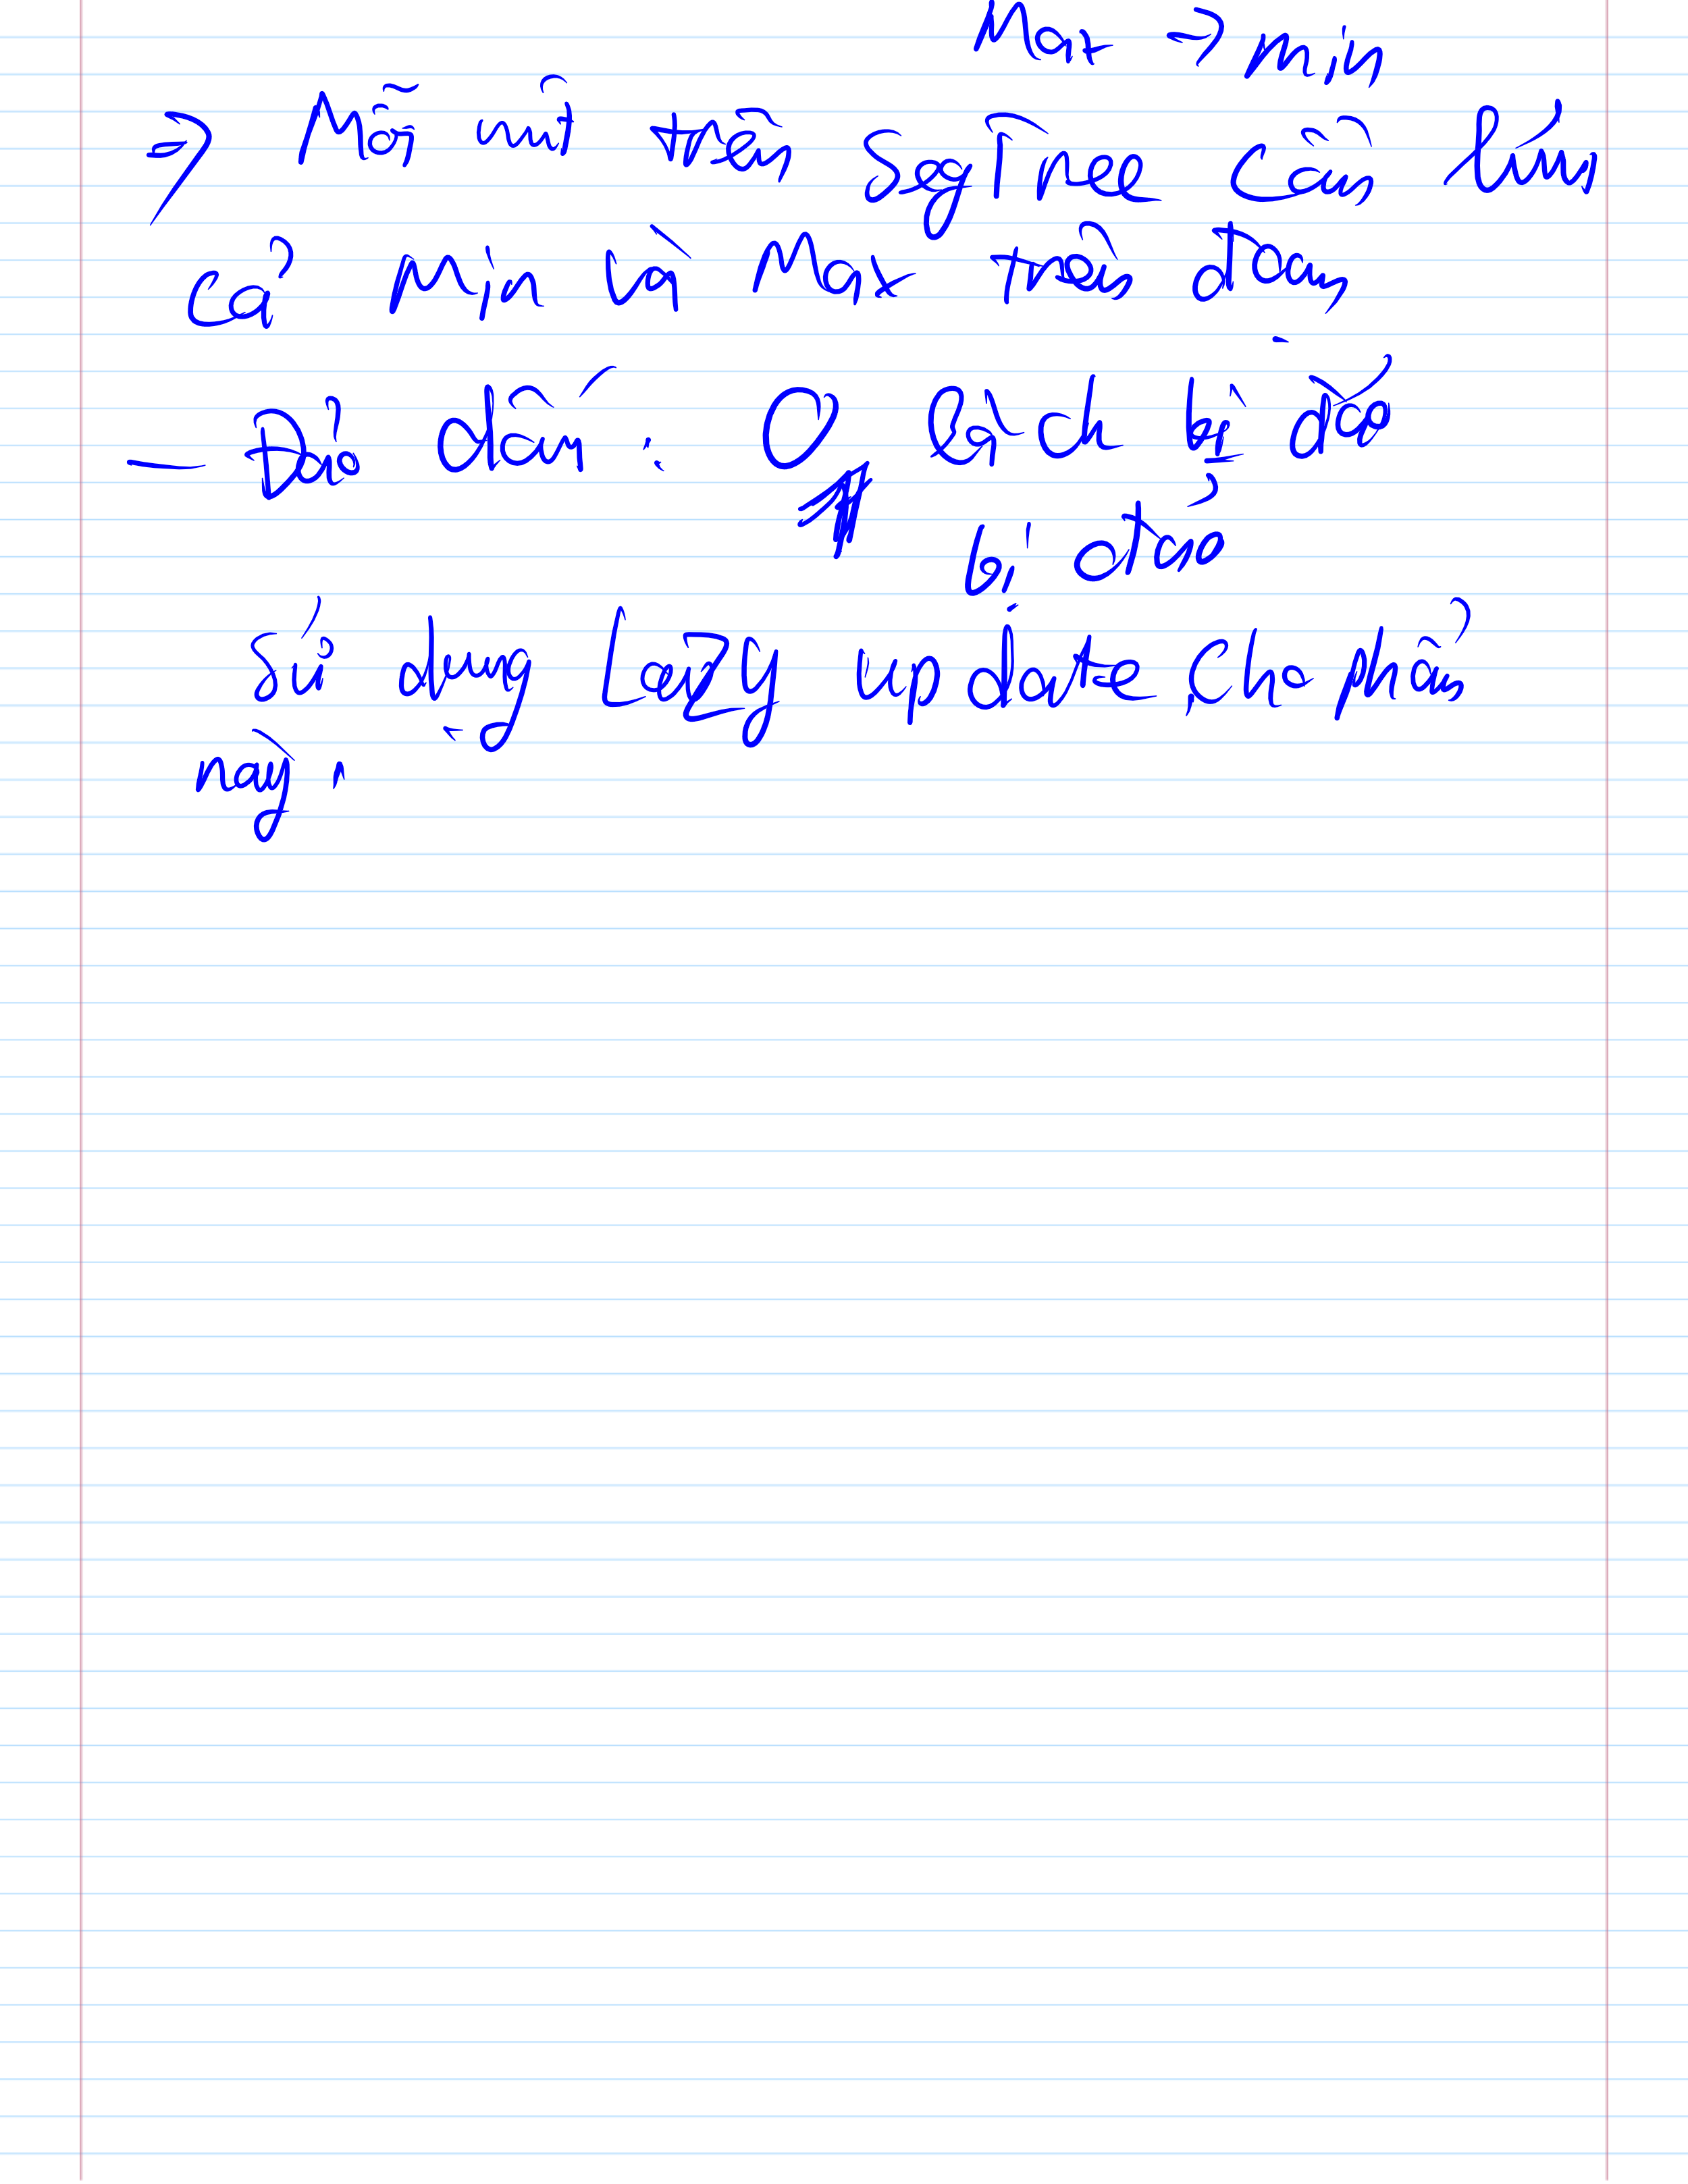 Max → min
→ Mỗi nút trên SegTree cần lưu
cả Min và Max trên đoạn
- Đổi dấu: 0 cách bị đảo
bị đảo
sử dụng Lazy update cho phần
này.